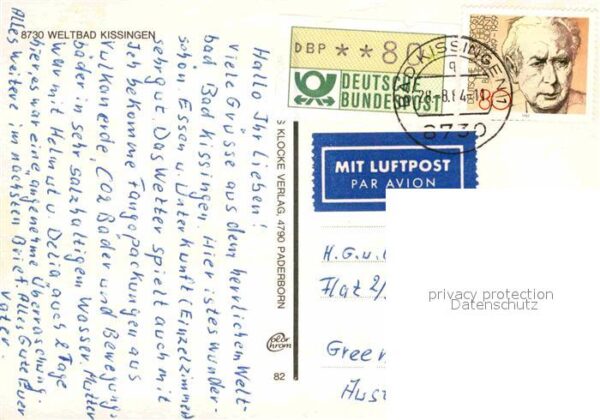 8730 WELTBAD KISSINGEN
Hallo Ihr Lieben!
Viele Grüsse aus dem herrlichem Welt-
bad Bad Kissingen. Hier ist es wunder-
schön. Essen u. Unterkunft (Einzelzimmer)
sehr gut. Das Wetter spielt auch mit
Ich bekomme Fangopackungen aus
Vulkanerde, CO2 Bäder und Bewegungs-
bäder in sehr salzhaltigem Wasser. Mutter
war mit Helmut u. Delia auch 2 Tage
hier, es war eine angenehme Überraschung.
Alles weitere im nächsten Brief. Alles Gute Euer
Vater.
KLOCKE VERLAG, 4790 PADERBORN
82
DBP **80
DEUTSCHE
BUNDESPOST
DEUTSCHE
80
BAD KISSINGEN 1
q
28.-8.84-11
8730
MIT LUFTPOST
PAR AVION
H.G.u.
Flat 2/
Green
Aus
privacy protection
Datenschutz